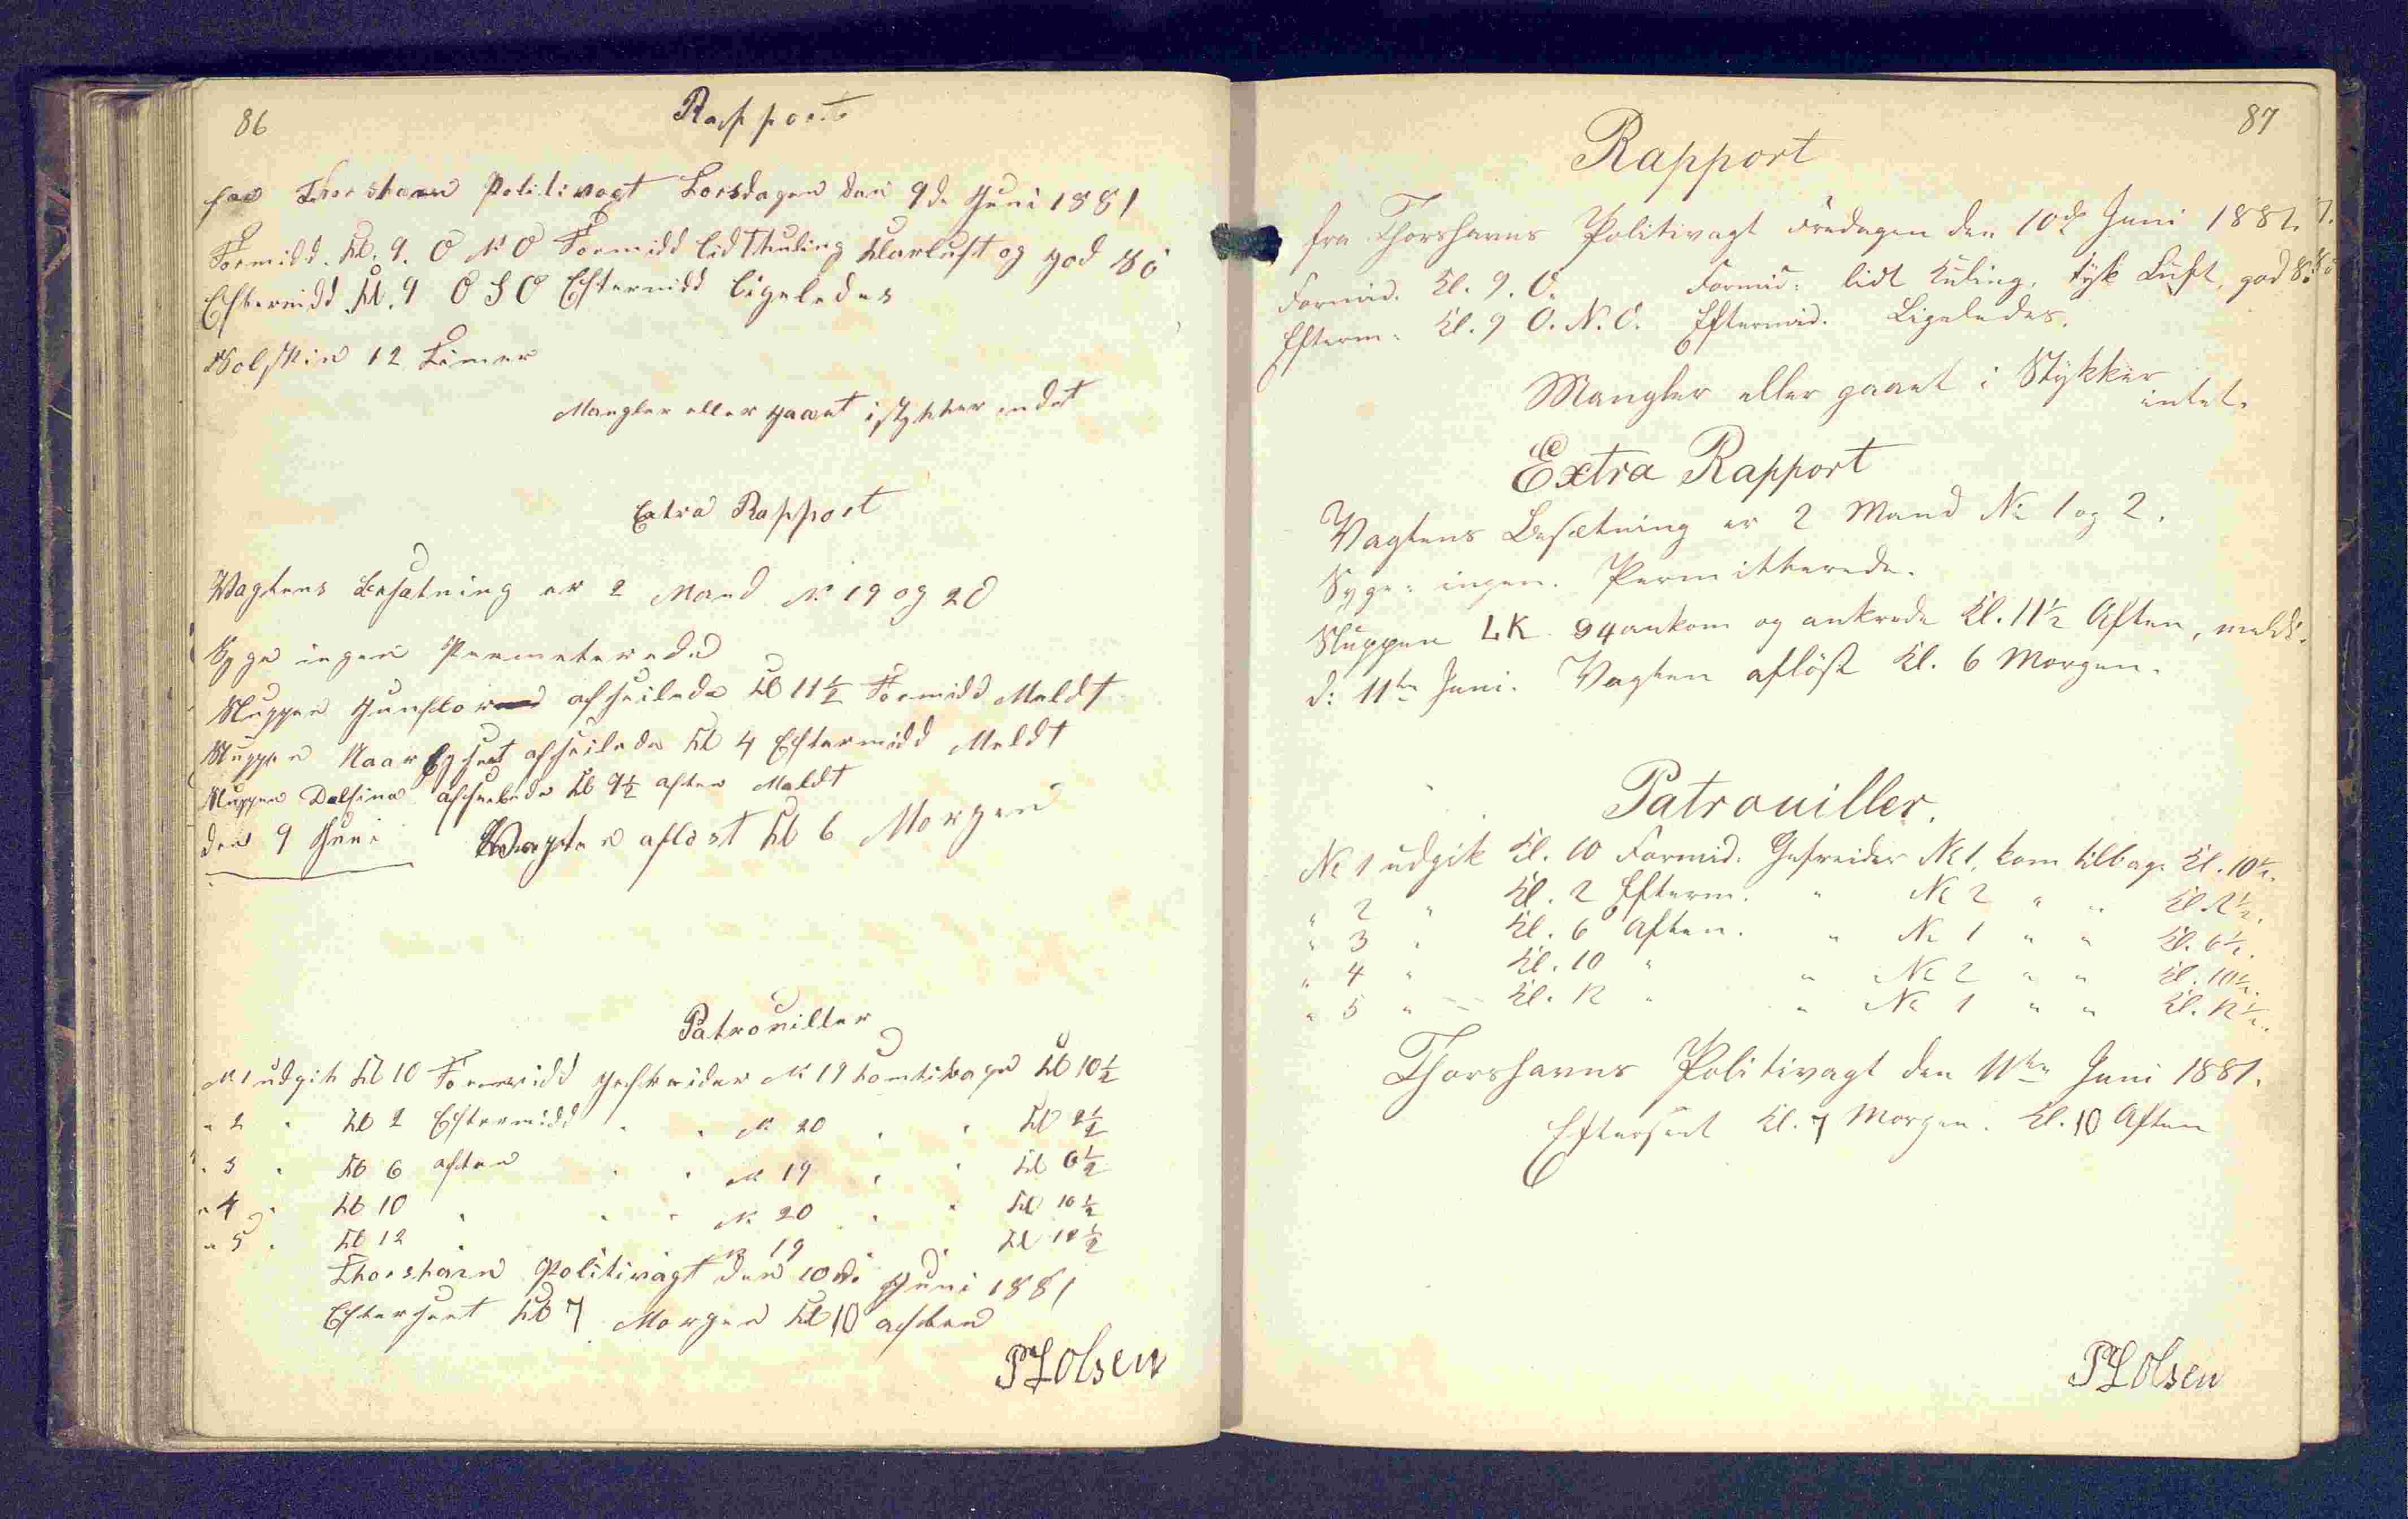 86
Rapport
fra Thorshavn Politivagt Torsdagen den 9de Juni 1881
Formidd. Kl. 9. O N O Formidd lidt Kuling Klarluft og god 80
Eftermidd Kl. 9 O S O Eftermidd ligeledes
Solskin 12 Timer
Mangler eller gaaet istykker indet
Extra Rapport
Vagtens Besætning er 2 Mand No 19 og 20
Syge ingen Permeterede
Sluppen afseilede Kl 11½ Formidd Meldt
Sluppen afseilede Kl 4 Eftermidd Meldt
Sluppen Delfine afseilede Kl 9½ aften Meldt
den 9 Juni Vagten aflöst Kl 6 Morgen
Patrouiller
No 1 udgik Kl 10 Formidd Gefreider No 19 kom tilbage Kl 10½
" 2 " Kl 2 Eftermidd " " No 20 " " Kl 2½
" 3 " Kl 6 aften " " No 19 " " Kl 6½
" 4 " Kl 10 " " " No 20 " " Kl 10½
" 5 " Kl 12 " No 19 " Kl 12½
Thorshavn Politivagt den 10de Juni 1881
Efterseet Kl 7 Morgen Kl 10 aften
PLOlsen
87
Rapport
fra Thorshavns Politivagt Fredagen den 10de Juni 1881.
Formid. Kl. 9. O. Formid: lidt Kuling, tyk Luft, god
Efterm: Kl. 9 O. N. O. Eftermid. Ligeledes.
Mangler eller gaaet i Stykker
intet.
Extra Rapport
Vagtens Besætning er 2 Mand No 1 og 2.
Syge: ingen. Permitterede.
Sluppen LK. 94 ankom og ankrede Kl. 11½ Aften, meldt.
d: 11te Juni. Vagten aflöst Kl. 6 Morgen.
Patrouiller.
No 1 udgik Kl. 10 Formid. Gefreider No 1, kom tilbage Kl. 10½.
" 2 " Kl. 2 Efterm. " No 2 " " Kl. 2½.
" 3 " Kl. 6 Aften. " No 1 " " Kl. 6½.
" 4 " Kl. 10 " " No 2 " " Kl. 10½.
" 5 " Kl. 12 " " No 1 " " Kl. 12½.
Thorshavns Politivagt den 11te Juni 1881.
Efterseet Kl. 7 Morgen. Kl. 10 Aften
PLOlsen